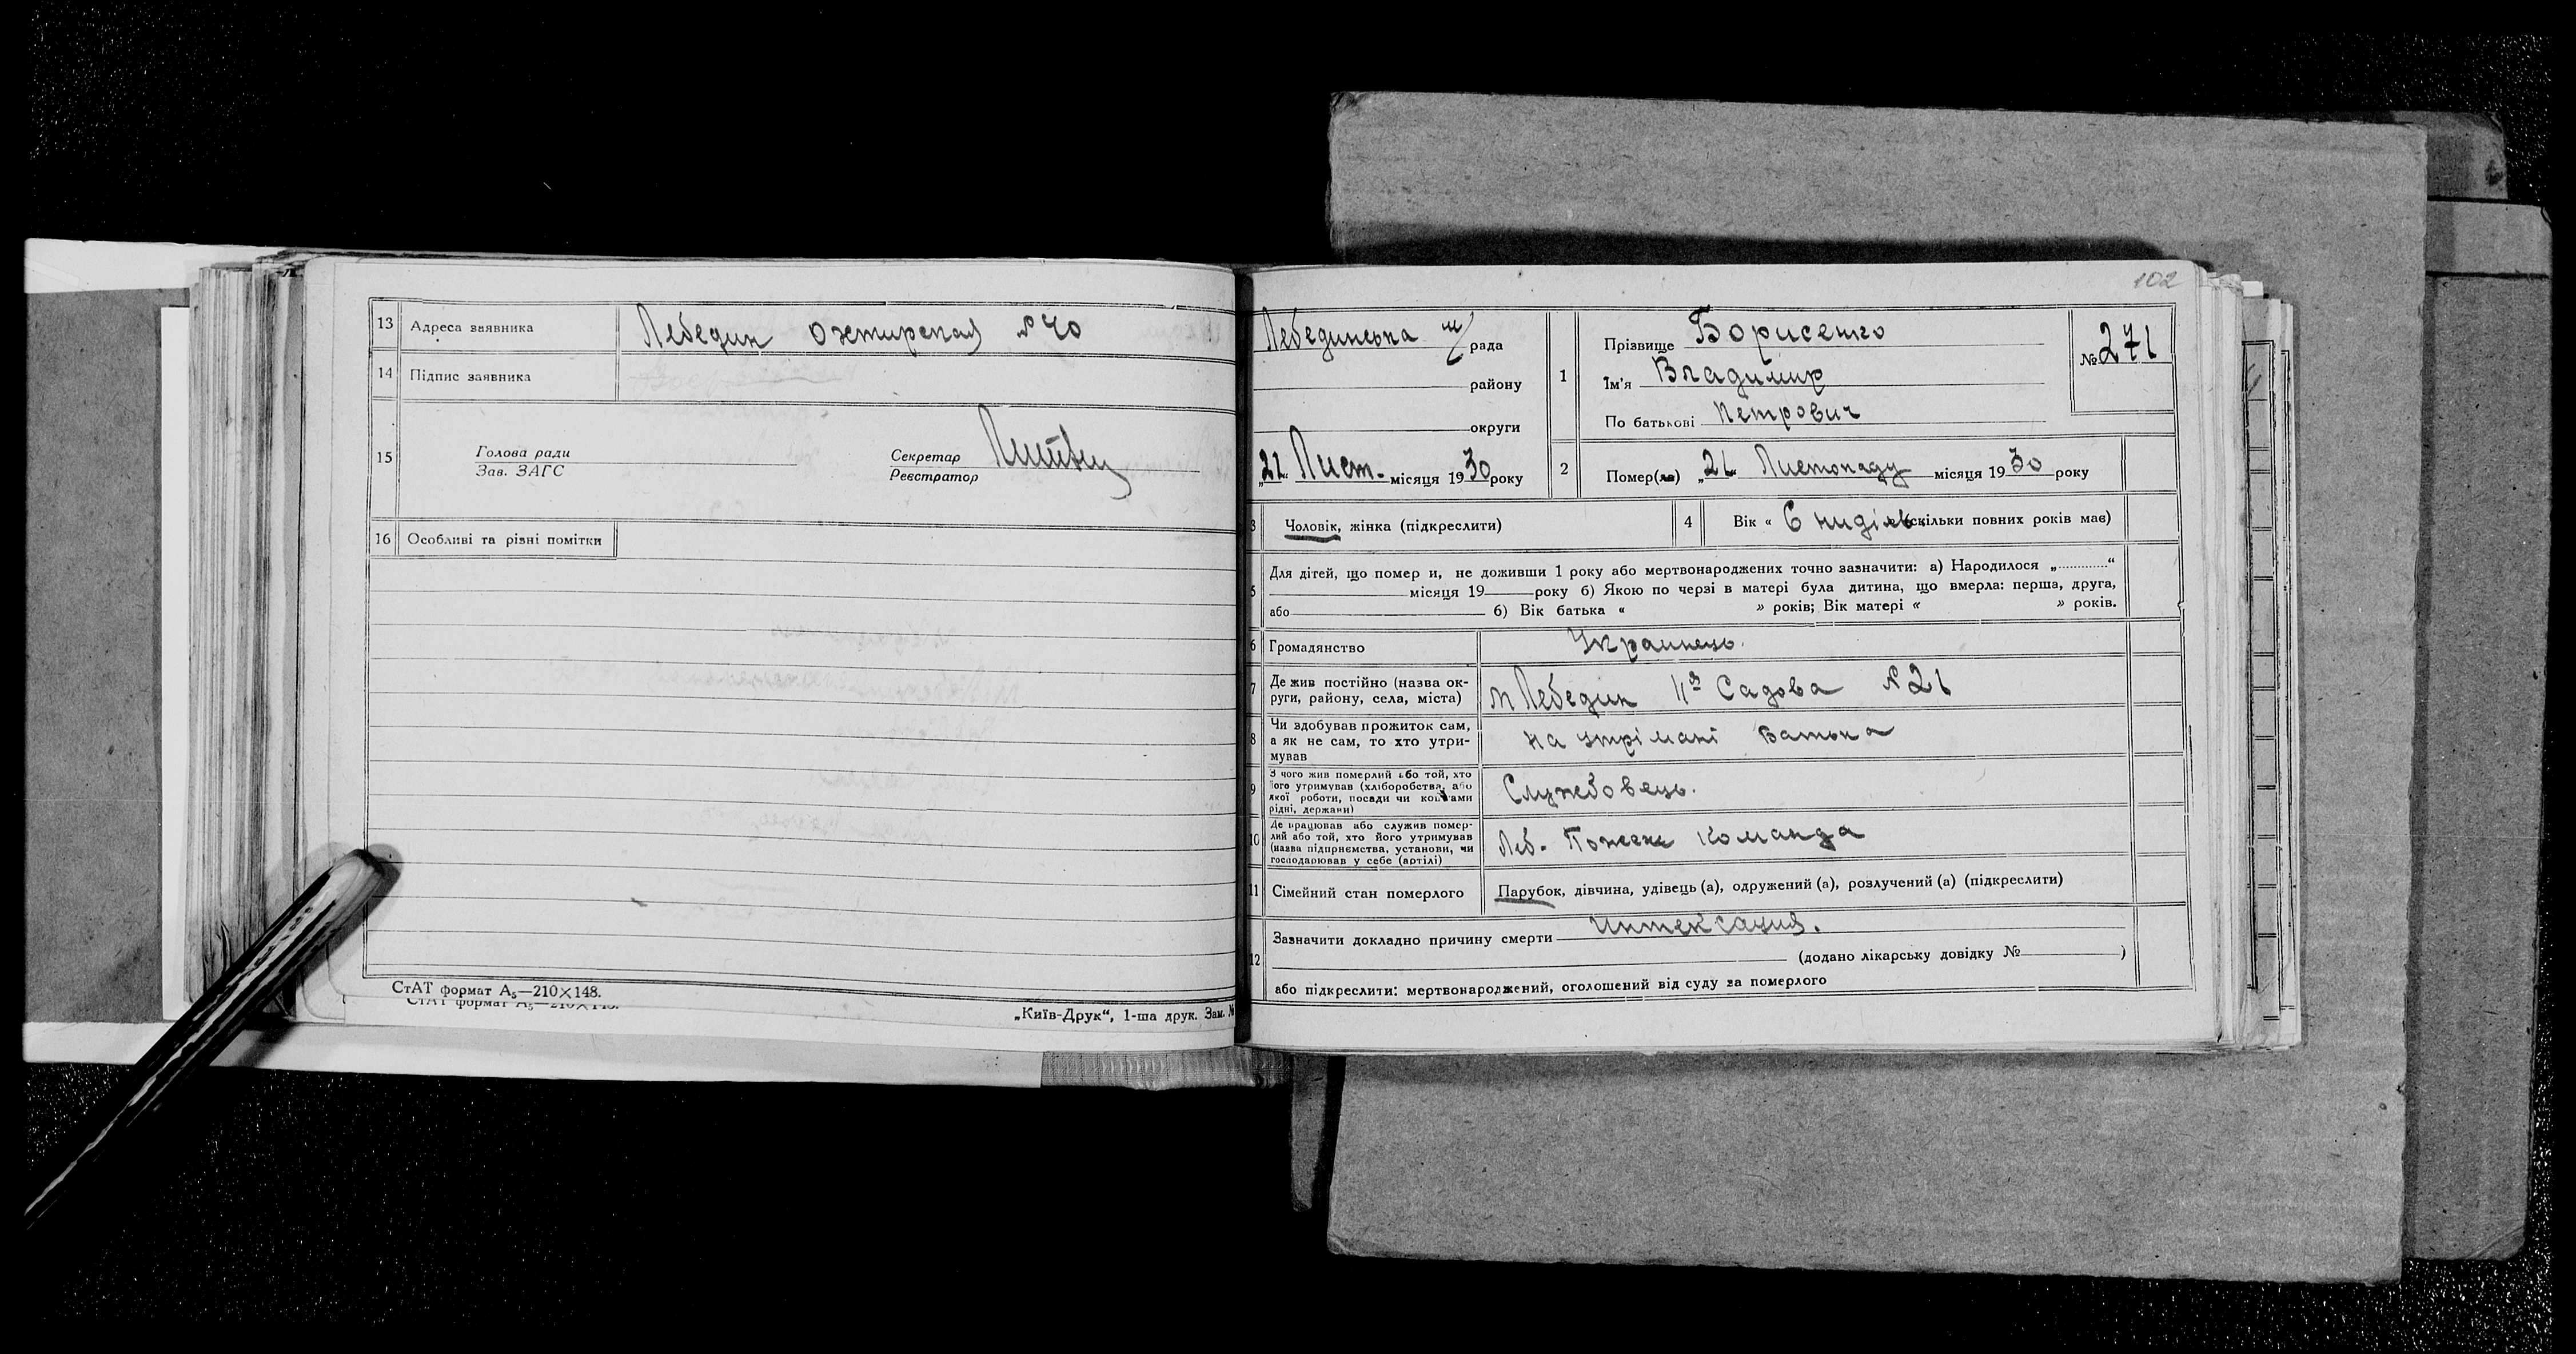 13 Адреса заявника Лебедин Охтирская №40
14 Підпис заявника
15 Голова ради
Зав. ЗАГС
Секретар
Реєстратор
16 Особливі та різні помітки
СтАТ формат А₅—210×148.
СтАТ формат А₅—210×148.
„Київ-Друк“, 1-ша друк. Зам. №
102
Лебединська м/рада
району
округи
„21“ Лист. місяця 1930 року
1 Прізвище Борисенко
Ім'я Владимир
По батькові Петрович
№ 271
2 Помер(ла) „21 Листопаду місяця 1930 року
3 Чоловік, жінка (підкреслити)
4 Вік « 6 ниділь (скільки повних років має)
5 Для дітей, що помер и, не доживши 1 року або мертвонароджених точно зазначити: а) Народилося „............“
місяця 19 року б) Якою по черзі в матері була дитина, що вмерла: перша, друга,
або б) Вік батька « » років; Вік матері « » років.
6 Громадянство Украинець.
7 Де жив постійно (назва ок-
руги, району, села, міста) м Лебедин Садова №21
8 Чи здобував прожиток сам,
а як не сам, то хто утри-
мував на утрімані Батька
9 З чого жив померлий або той, хто
його утримував (хліборобства, або
якої роботи, посади чи коштами
рідні, держави) Службовець.
10 Де працював або служив помер-
лий або той, хто його утримував
(назва підприємства, установи, чи
господарював у себе (артілі) Леб. Пожежн Команда
11 Сімейний стан померлого Парубок, дівчина, удівець (а), одружений (а), розлучений (а) (підкреслити)
12 Зазначити докладно причину смерти Интексация.
(додано лікарську довідку № )
або підкреслити: мертвонароджений, оголошений від суду за померлого